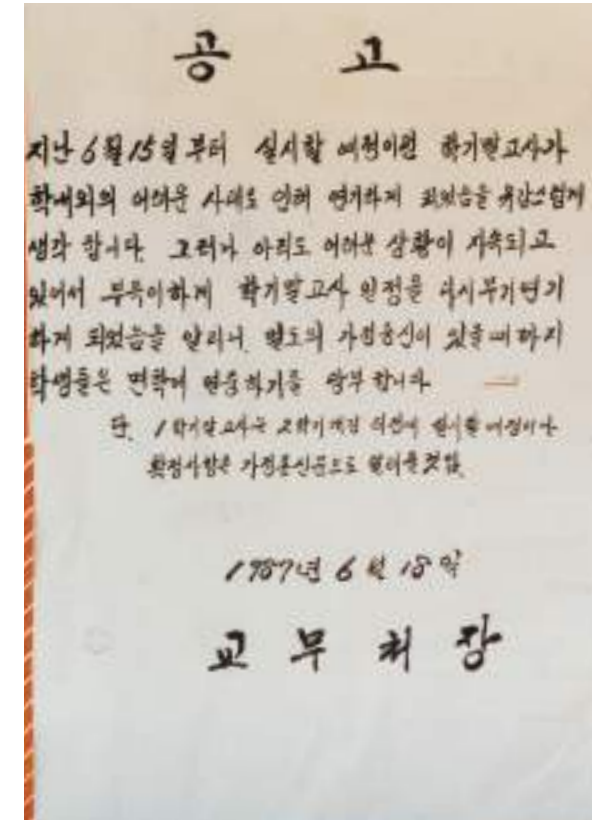 공 고
지난 6월 15일 부터 실시할 예정이던 학기말고사가
학내외의 어려운 사태로 인해 연기하게 되었음을 유감스럽게
생각 합니다. 그러나 아직도 어려운 상황이 지속되고
있어서 부득이하게 학기말고사 일정을 다시 무기연기
하게 되었음을 알리니, 별도의 가정통신이 있을때 까지
학생들은 면학에 열중하기를 당부 합니다.
단, 1학기말고사는 2학기개강 이전에 실시할 예정이나
확정사항은 가정통신문으로 알려줄것임.
1987년 6월 18일
교 무 처 장